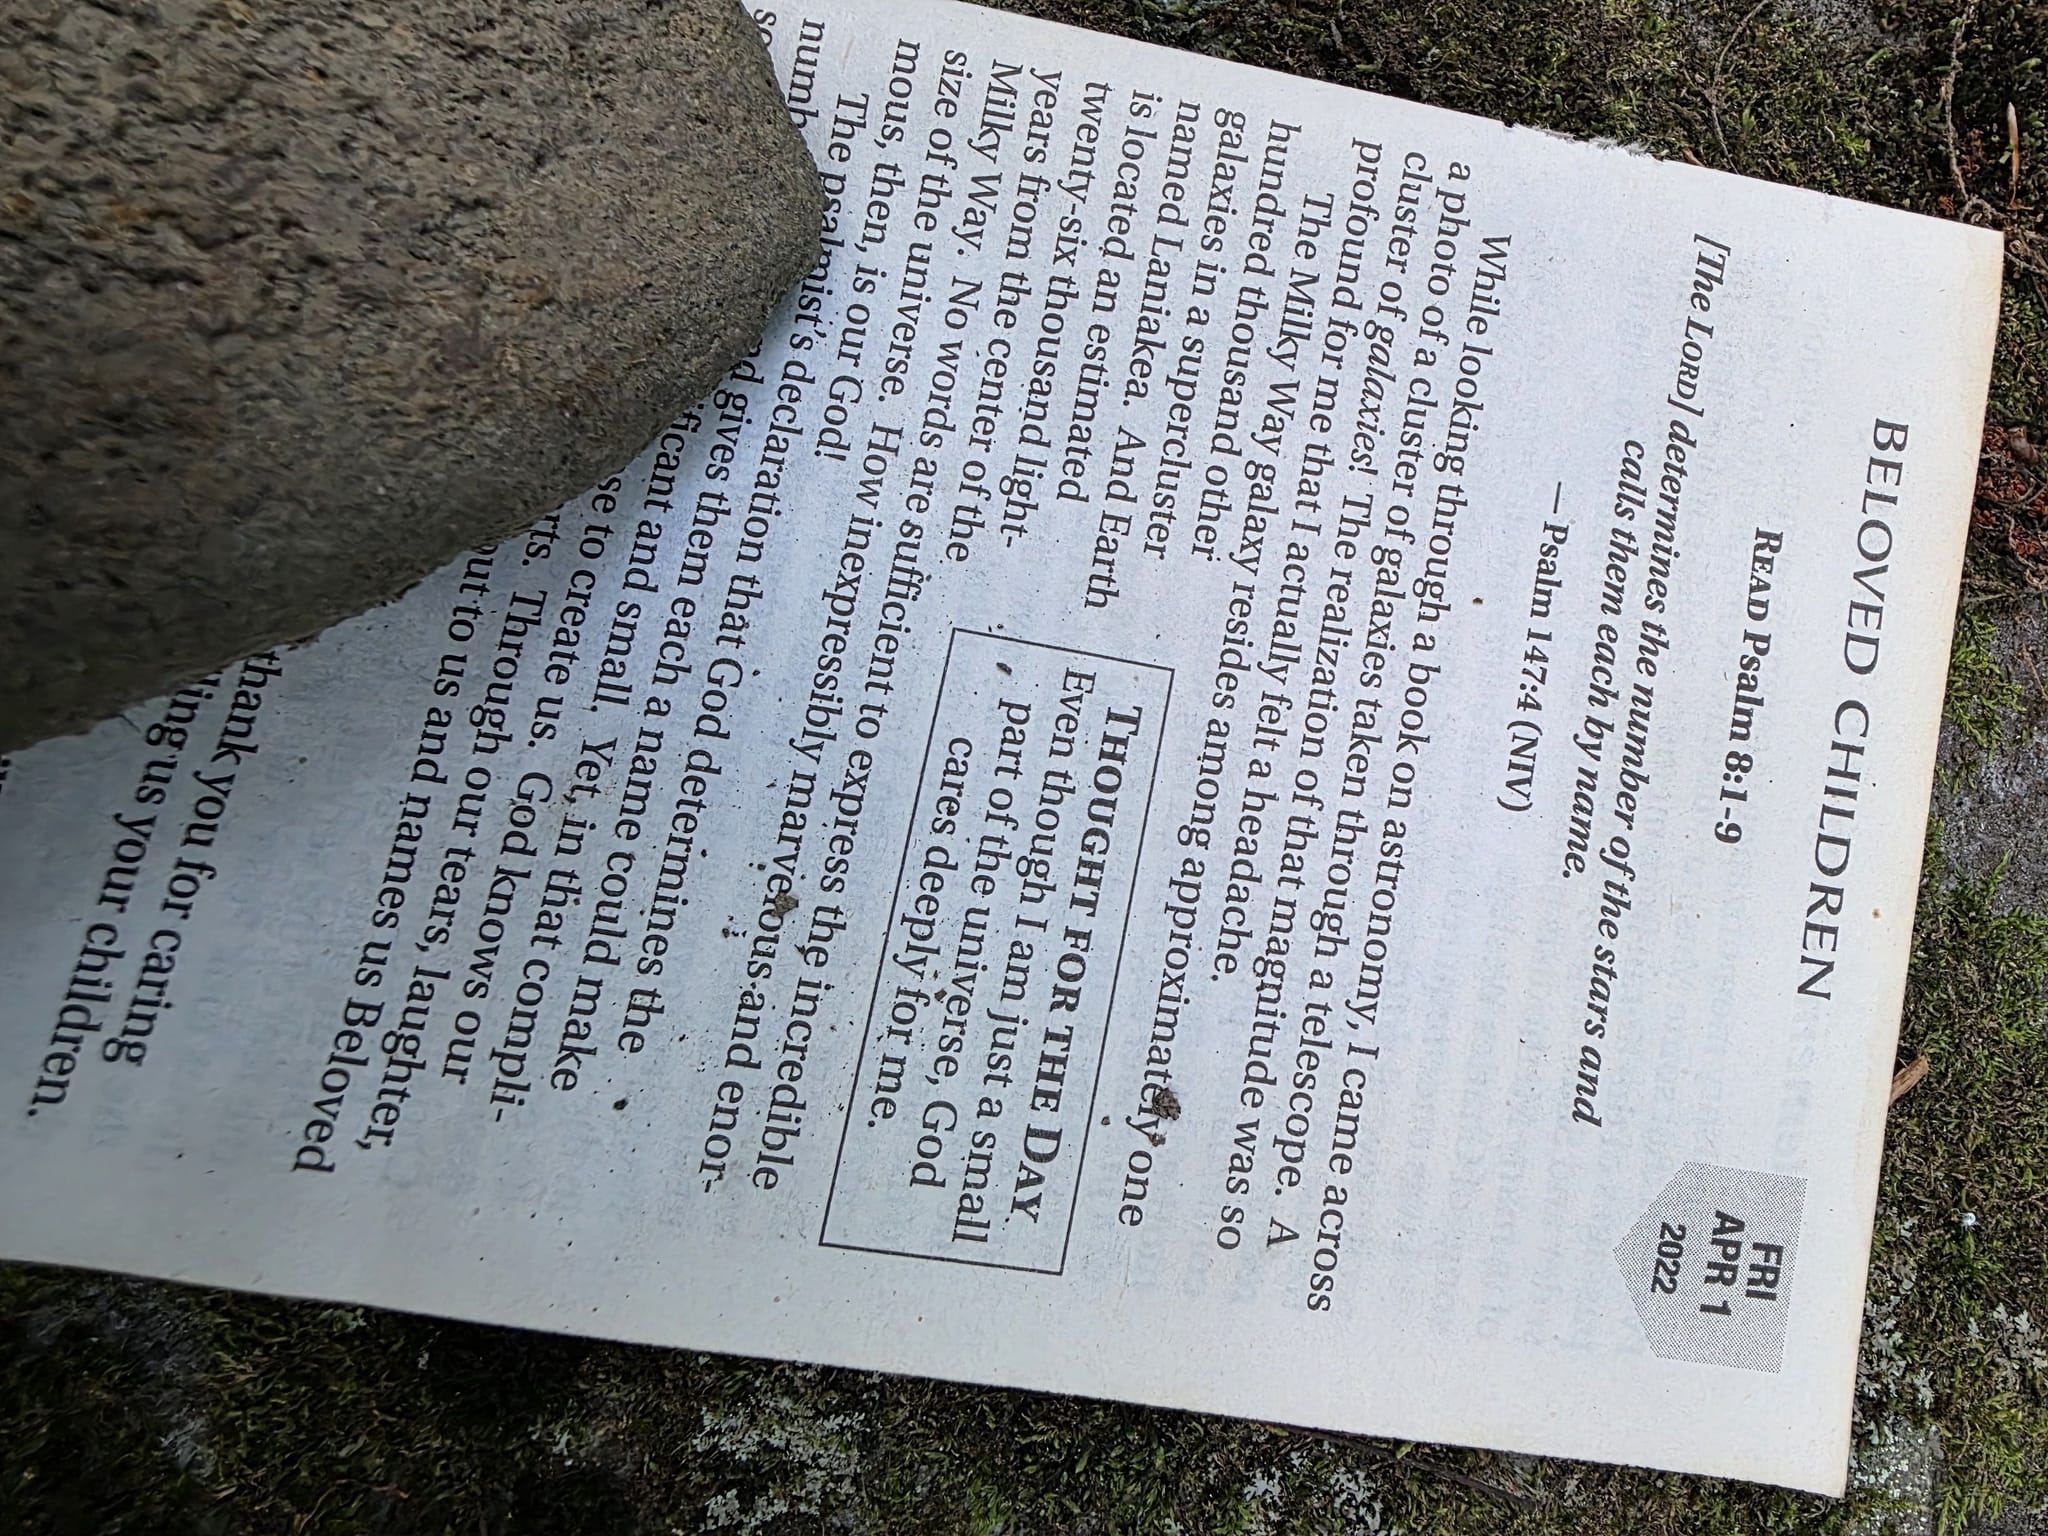 BELOVED CHILDREN
FRI
APR 1
2022
READ Psalm 8:1-9
[The LORD] determines the number of the stars and
calls them each by name.
—Psalm 147:4 (NIV)
While looking through a book on astronomy, I came across
a photo of a cluster of galaxies taken through a telescope. A
cluster of galaxies! The realization of that magnitude was so
profound for me that I actually felt a headache.
The Milky Way galaxy resides among approximately one
hundred thousand other
galaxies in a supercluster
named Laniakea. And Earth
is located an estimated
twenty-six thousand light-
years from the center of the
Milky Way. No words are sufficient to express the incredible
size of the universe. How inexpressibly marvelous and enor-
mous, then, is our God!
THOUGHT FOR THE DAY
Even though I am just a small
part of the universe, God
cares deeply for me.
The psalmist's declaration that God determines the
gives them each a name could make
and small. Yet, in that compli-
to create us. God knows our
Through our tears, laughter,
to us and names us Beloved
thank you for caring
us your children.